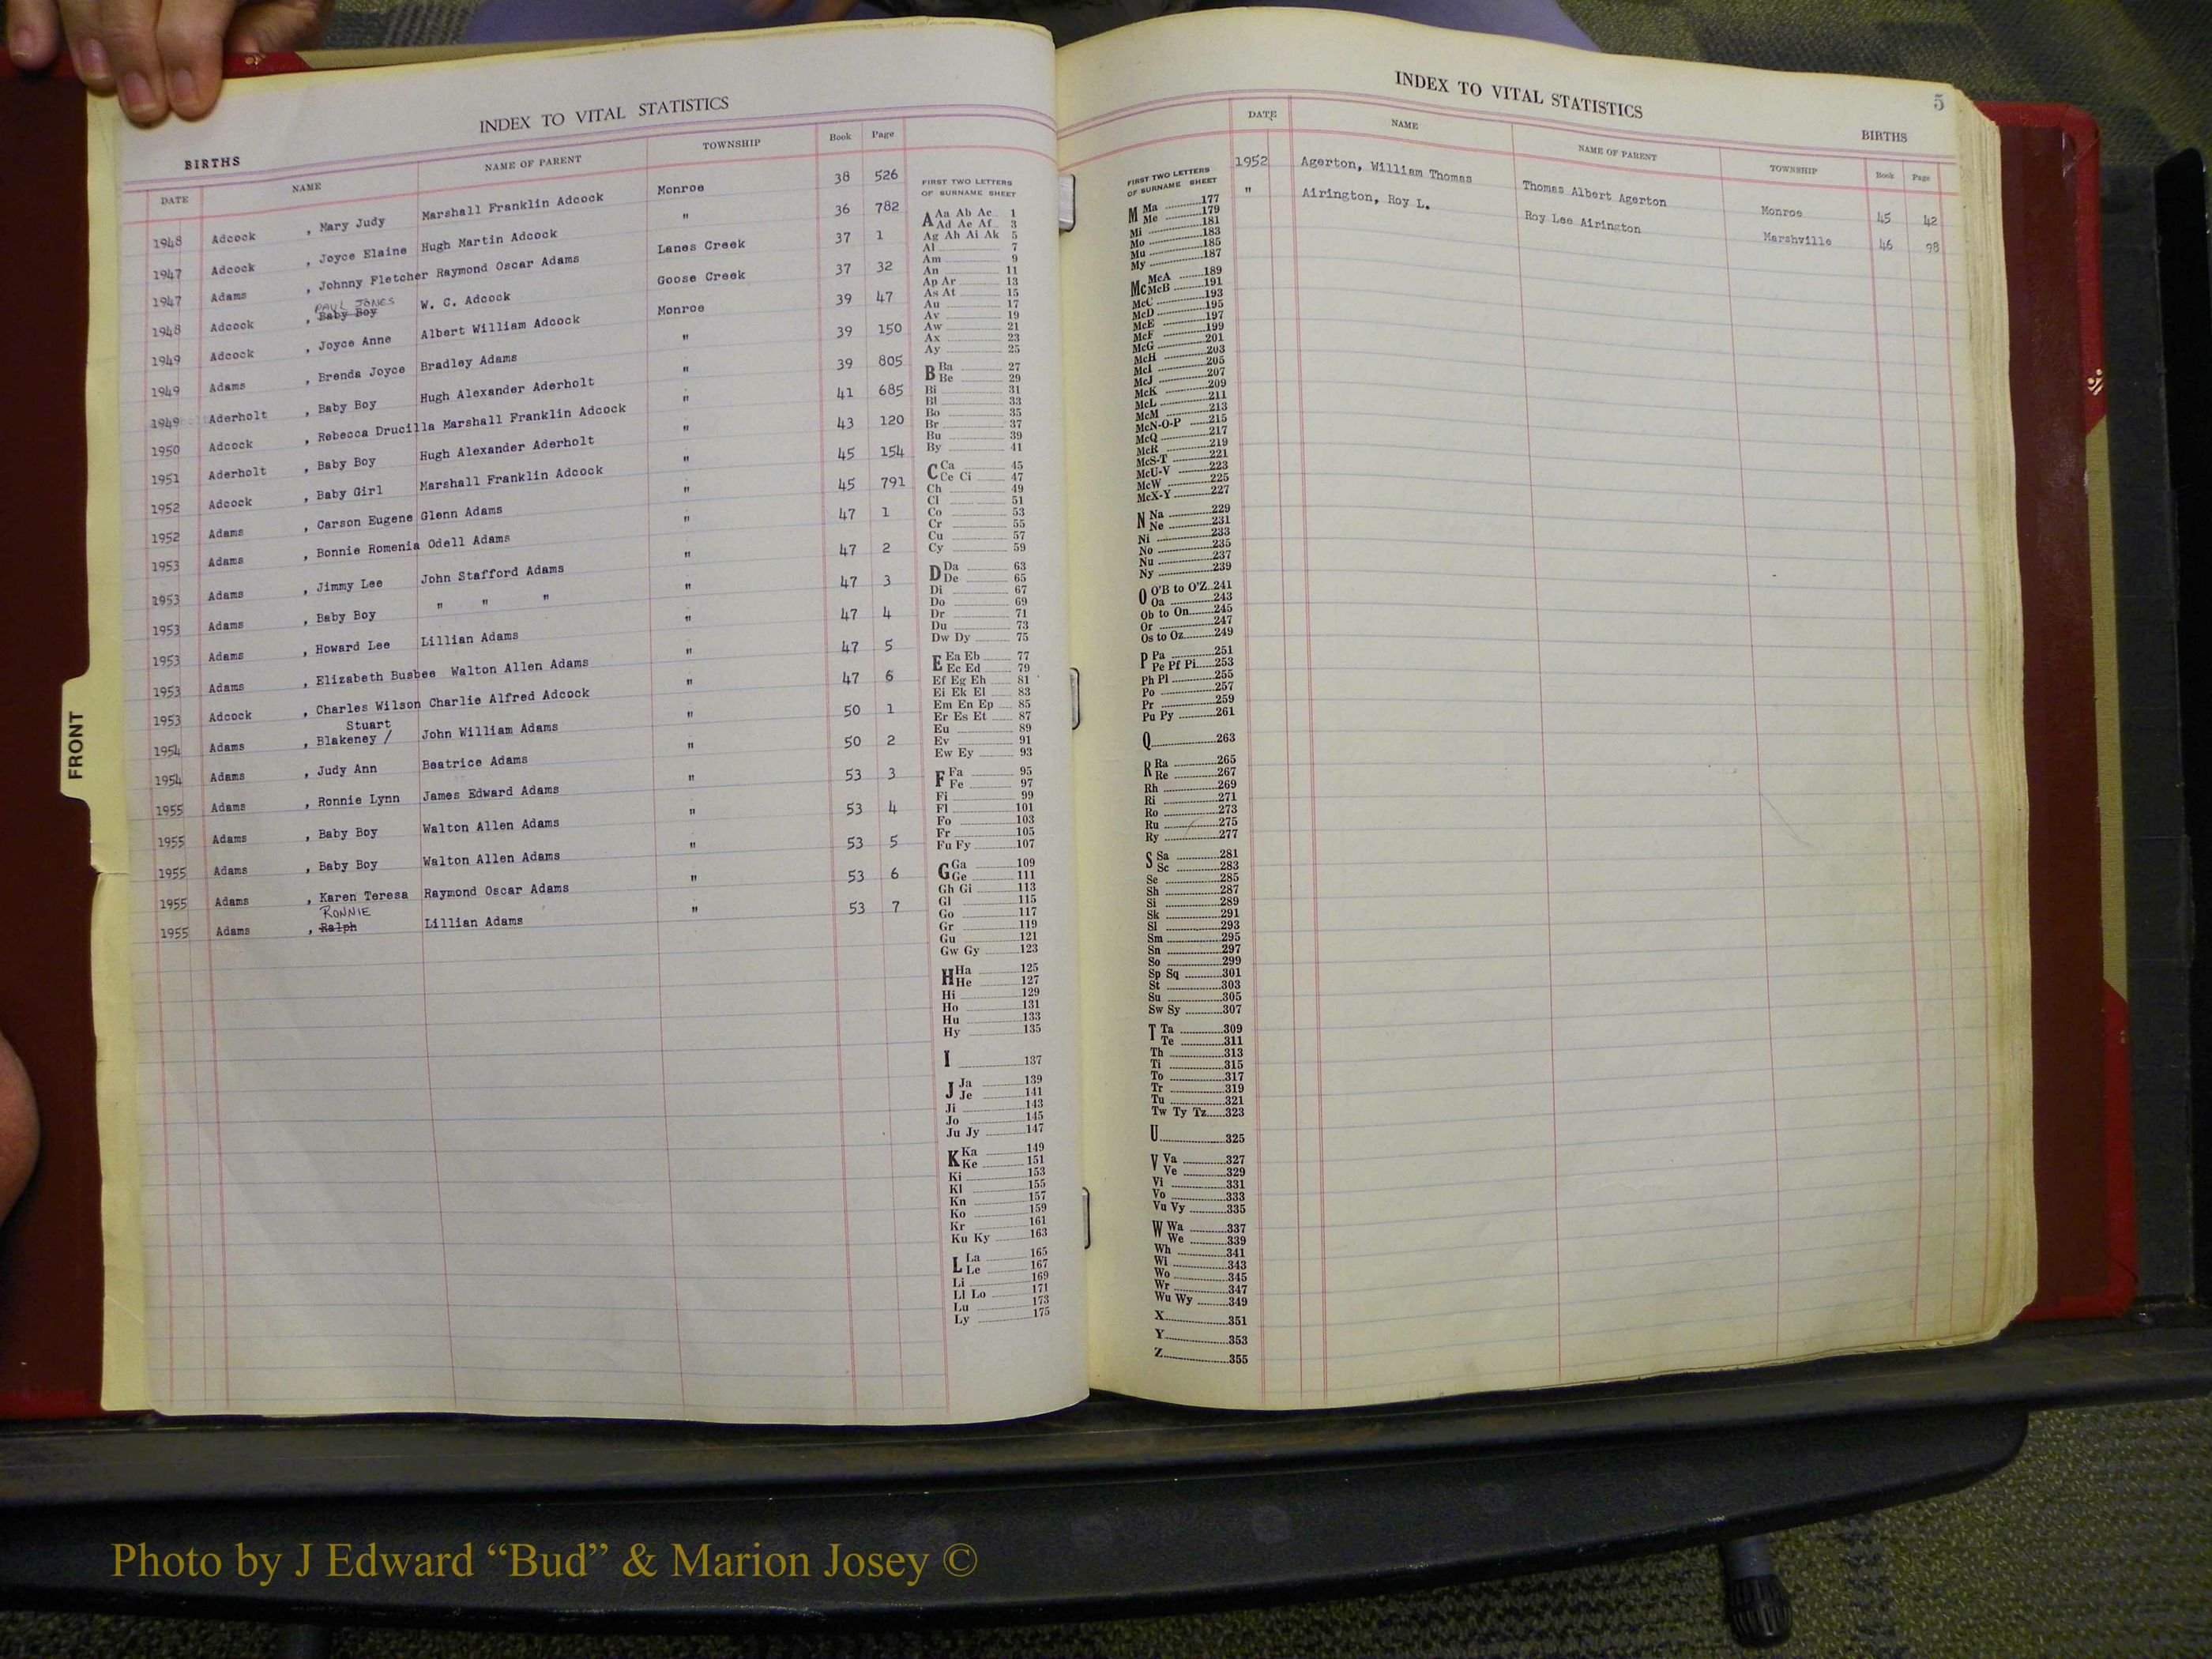 INDEX TO VITAL STATISTICS
BIRTHS
DATE NAME NAME OF PARENT TOWNSHIP Book Page
1948 Adcock , Mary Judy Marshall Franklin Adcock Monroe 38 526
1947 Adcock , Joyce Elaine Hugh Martin Adcock " 36 782
1947 Adams , Johnny Fletcher Raymond Oscar Adams Lanes Creek 37 1
PAUL JONES
1948 Adcock , Baby Boy W. C. Adcock Goose Creek 37 32
1949 Adcock , Joyce Anne Albert William Adcock Monroe 39 47
1949 Adams , Brenda Joyce Bradley Adams " 39 150
1949 Aderholt , Baby Boy Hugh Alexander Aderholt " 39 805
1950 Adcock , Rebecca Drucilla Marshall Franklin Adcock " 41 685
1951 Aderholt , Baby Boy Hugh Alexander Aderholt " 43 120
1952 Adcock , Baby Girl Marshall Franklin Adcock " 45 154
1952 Adams , Carson Eugene Glenn Adams " 45 791
1953 Adams , Bonnie Romenia Odell Adams " 47 1
1953 Adams , Jimmy Lee John Stafford Adams " 47 2
1953 Adams , Baby Boy " " " " 47 3
1953 Adams , Howard Lee Lillian Adams " 47 4
1953 Adams , Elizabeth Busbee Walton Allen Adams " 47 5
1953 Adcock , Charles Wilson Charlie Alfred Adcock " 47 6
Stuart
1954 Adams , Blakeney / John William Adams " 50 1
1954 Adams , Judy Ann Beatrice Adams " 50 2
1955 Adams , Ronnie Lynn James Edward Adams " 53 3
1955 Adams , Baby Boy Walton Allen Adams " 53 4
1955 Adams , Baby Boy Walton Allen Adams " 53 5
1955 Adams , Karen Teresa Raymond Oscar Adams " 53 6
RONNIE
1955 Adams , Ralph Lillian Adams " 53 7
FRONT
FIRST TWO LETTERS
OF SURNAME SHEET
A Aa Ab Ac 1
Ad Ae Af 3
Ag Ah Ai Ak 5
Al 7
Am 9
An 11
Ap Ar 13
As At 15
Au 17
Av 19
Aw 21
Ax 23
Ay 25
B Ba 27
Be 29
Bi 31
Bl 33
Bo 35
Br 37
Bu 39
By 41
C Ca 45
Ce Ci 47
Ch 49
Cl 51
Co 53
Cr 55
Cu 57
Cy 59
D Da 63
De 65
Di 67
Do 69
Dr 71
Du 73
Dw Dy 75
E Ea Eb 77
Ec Ed 79
Ef Eg Eh 81
Ei Ek El 83
Em En Ep 85
Er Es Et 87
Eu 89
Ev 91
Ew Ey 93
F Fa 95
Fe 97
Fi 99
Fl 101
Fo 103
Fr 105
Fu Fy 107
G Ga 109
Ge 111
Gh Gi 113
Gl 115
Go 117
Gr 119
Gu 121
Gw Gy 123
H Ha 125
He 127
Hi 129
Ho 131
Hu 133
Hy 135
I 137
J Ja 139
Je 141
Ji 143
Jo 145
Ju Jy 147
K Ka 149
Ke 151
Ki 153
Kl 155
Kn 157
Ko 159
Kr 161
Ku Ky 163
L La 165
Le 167
Li 169
Ll Lo 171
Lu 173
Ly 175
INDEX TO VITAL STATISTICS 5
BIRTHS
DATE NAME NAME OF PARENT TOWNSHIP Book Page
1952 Agerton, William Thomas Thomas Albert Agerton Monroe 45 42
" Airington, Roy L. Roy Lee Airington Marshville 46 98
FIRST TWO LETTERS
OF SURNAME SHEET
M Ma 177
Me 179
Mi 181
Mo 183
Mu 185
My 187
Mc McA 189
McB 191
McC 193
McD 195
McE 197
McF 199
McG 201
McH 203
McI 205
McJ 207
McK 209
McL 211
McM 213
McN-O-P 215
McQ 217
McR 219
McS-T 221
McU-V 223
McW 225
McX-Y 227
N Na 229
Ne 231
Ni 233
No 235
Nu 237
Ny 239
O O'B to O'Z 241
Oa 243
Ob to On 245
Or 247
Os to Oz 249
P Pa 251
Pe Pf Pi 253
Ph Pl 255
Po 257
Pr 259
Pu Py 261
Q 263
R Ra 265
Re 267
Rh 269
Ri 271
Ro 273
Ru 275
Ry 277
S Sa 281
Sc 283
Se 285
Sh 287
Si 289
Sk 291
Sl 293
Sm 295
Sn 297
So 299
Sp Sq 301
St 303
Su 305
Sw Sy 307
T Ta 309
Te 311
Th 313
Ti 315
To 317
Tr 319
Tu 321
Tw Ty Tz 323
U 325
V Va 327
Ve 329
Vi 331
Vo 333
Vu Vy 335
W Wa 337
We 339
Wh 341
Wi 343
Wo 345
Wr 347
Wu Wy 349
X 351
Y 353
Z 355
Photo by J Edward “Bud” & Marion Josey ©